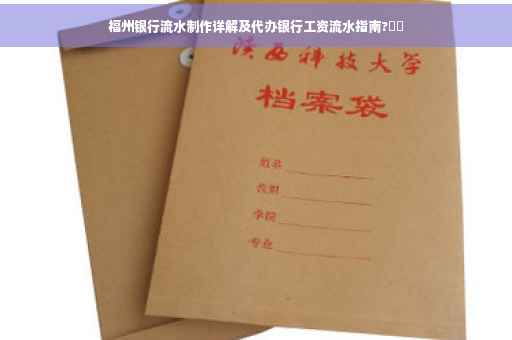 福州银行流水制作详解及代办银行工资流水指南?
陕西科技大学
档案袋
姓名
学院
专业